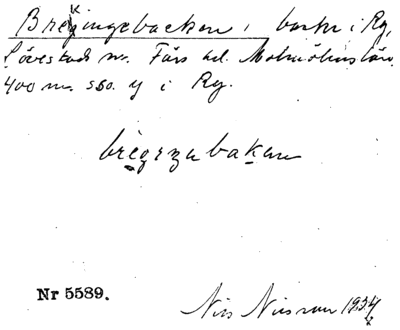 Brekingebacken, backe i Rg,
Lövestads sn. Färs hd. Malmöhus län.
400 m. sso. y i Rg.
bregızubakan
Nr 5589.
Nils Nilsson 1934